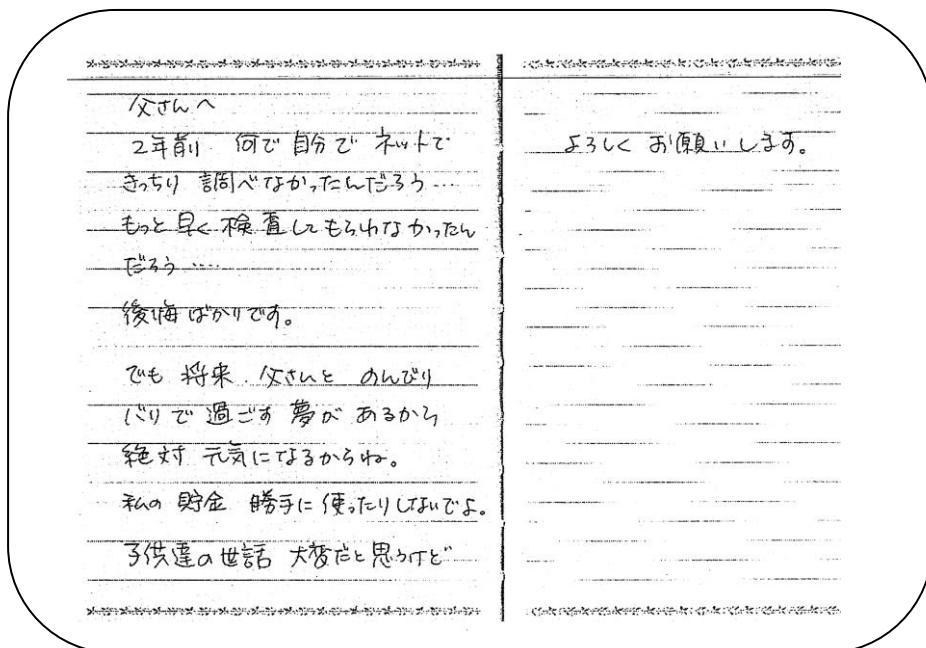 父さんへ
2年前 何で自分で ネットで
きっちり 調べなかったんだろう…
もっと早く検査してもらわなかったん
だろう……
後悔ばかりです。
でも 将来、父さんと のんびり
バリで過ごす夢が あるから
絶対 元気になるからね。
私の貯金 勝手に使ったりしないでよ。
子供達の世話 大変だと思うけど
よろしく お願いします。